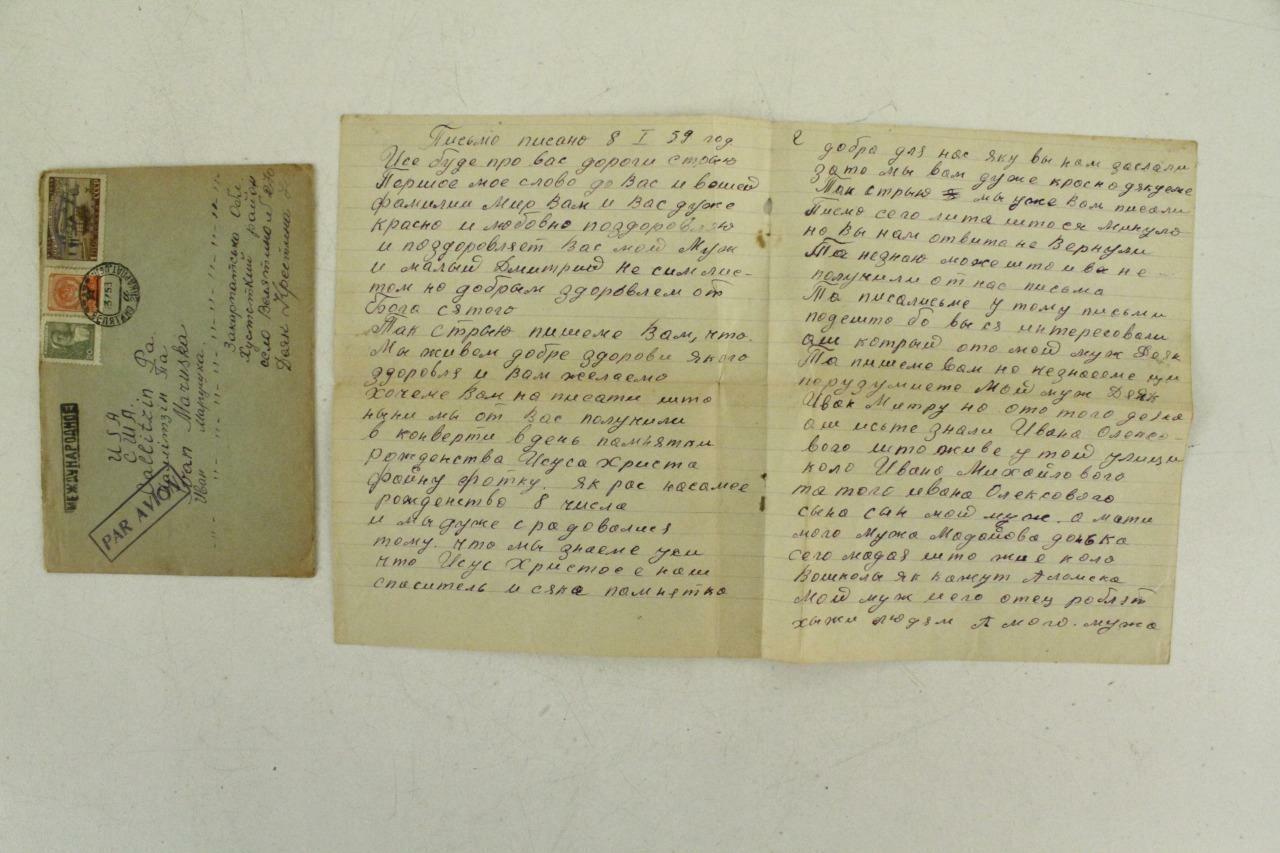 МЕЖДУНАРОДНОЕ
PAR AVION
USA
США
Gallitzin Pa.
Галлитзин Па
Ivan Maruska
Иван Марушка
Закарпатська Обл
Хустський район
село Велятино
Дояк
Письмо писано 8 I 59 год
Исе буде про вас дороги стрыю
Першое мое слово до Вас и вашей
фамилии Мир Вам и Вас дуже
красно и любовно поздоровляю
и поздоровляет Вас мой Муж
и малый Дмитрий не сим лис-
том но добрым здоровлем от
Бога сятого
Так стрыю пишеме Вам, что
Мы живем добре здорови якого
здоровля и Вам желаемо
хочеме Вам написати што
ныни мы от Вас получили
в конверти в день памнятки
рожденства Исуса Христа
файну фотку. як рас насамое
рожденство 8 числа
и мы дуже срадовалися
тому. что мы знаеме уси
что Исус Христос е наш
спаситель и сяка памнятка
2
добра для нас яку вы нам заслали
зато мы вам дуже красно дякуеме
Так стрыю мы уже вам писали
Писмо сего лита што ся минуло
но Вы нам отвита не Вернули
Та незнаю може што и вы не
получили от нас письма
Та писалисьме у тому письми
подешто бо вы ся интересовали
аш котрый ото мой муж Дояк
Та пишеме вам но незнаеме ци
порузумиете Мой муж Дояк
Иван Митру но ото того дояка
аш исьте знали Ивана Олексо-
вого што живе у той улици
коло Ивана Михайлового
та того ивана Олексового
сына сын мой муж. а мати
мого мужа Мадойова донька
сего мадоя што жие коло
Вошколы як кажут
Мой муж и его отец роблят
хыжи людям А мого мужа